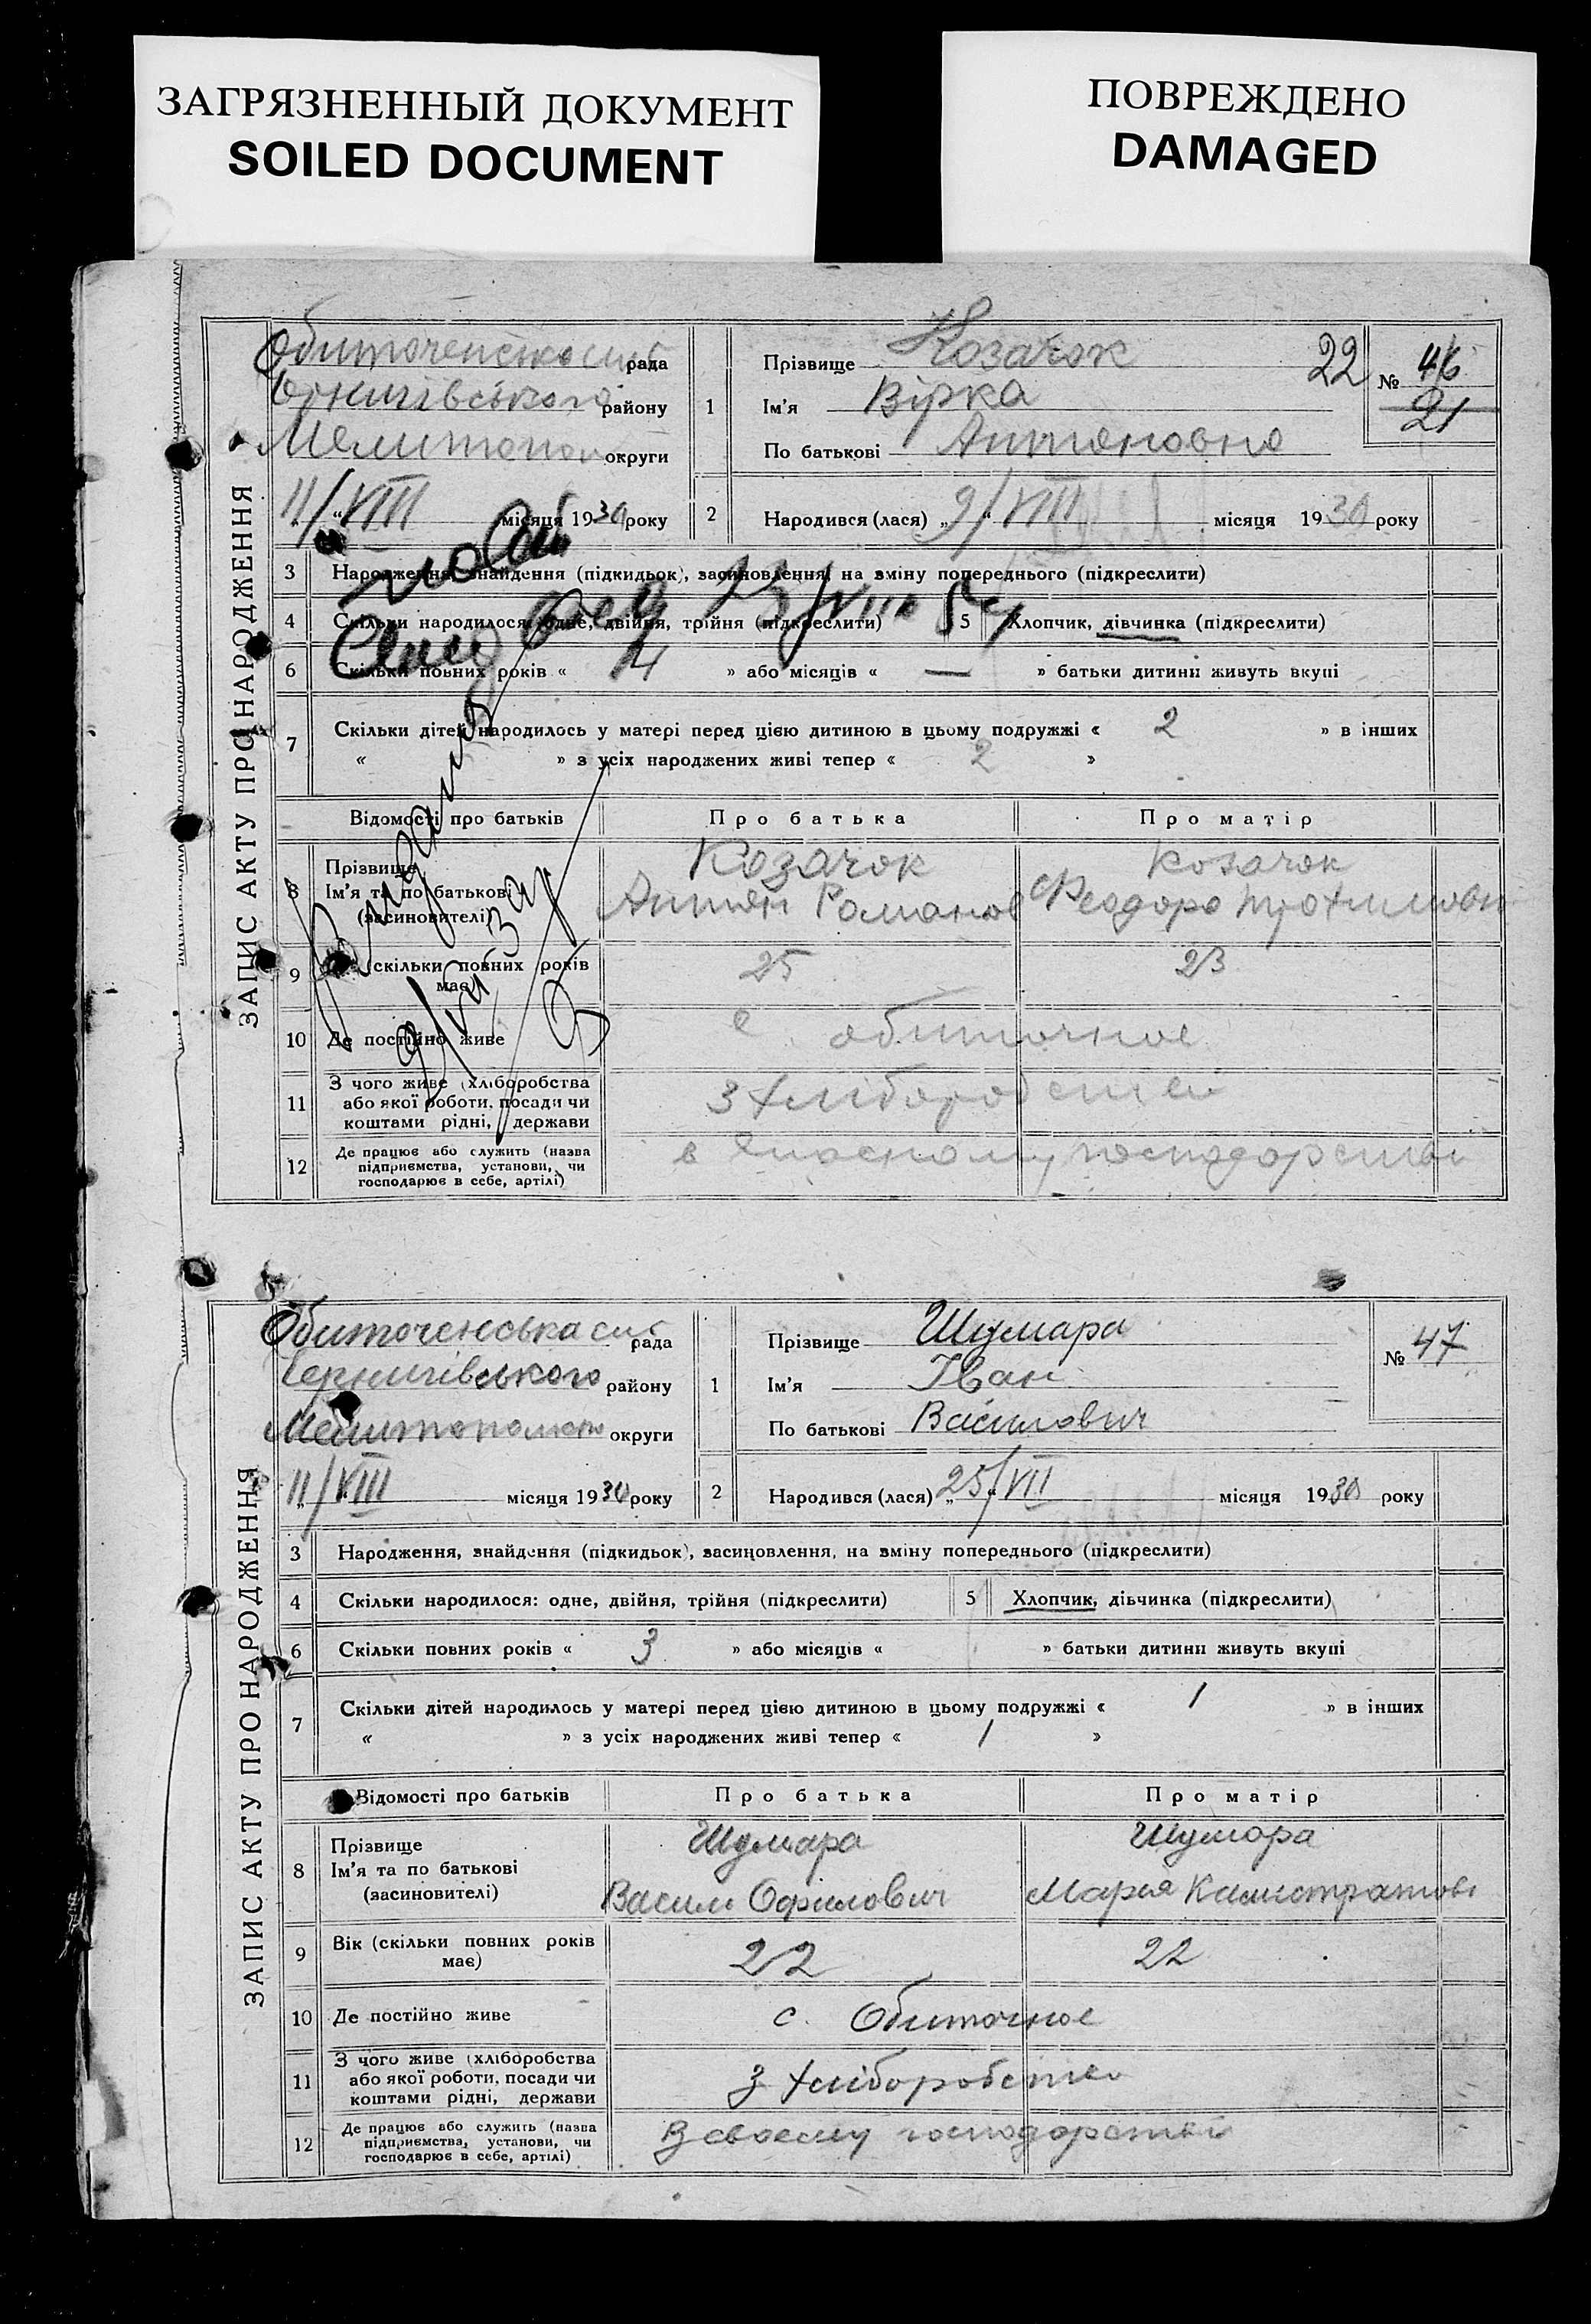 ЗАГРЯЗНЕННЫЙ ДОКУМЕНТ
SOILED DOCUMENT
ПОВРЕЖДЕНО
DAMAGED
ЗАПИС АКТУ ПРО НАРОДЖЕННЯ
рада
району
Мелитопол округи
11/VIII місяця 1930 року
1 Прізвище Козачок
Ім'я Вірка
По батькові Антоновна
22 № 46
21
2 Народився (лася) „ 9/VIII місяця 1930 року
3 Народження, знайдення (підкидьок), засиновлення, на зміну попереднього (підкреслити)
4 Скільки народилося: одне, двійня, трійня (підкреслити) 5 Хлопчик, дівчинка (підкреслити)
23/VIII 54
6 Скільки повних років « 4 » або місяців « — » батьки дитини живуть вкупі
7 Скільки дітей народилось у матері перед цією дитиною в цьому подружжі « 2 » в інших
« » з усіх народжених живі тепер « 2 »
Відомості про батьків Про батька Про матір
8 Прізвище
Ім'я та по батькові
(засиновителі)
Козачок
Антон Романов
Козачок
Феодора Трохимовн
9 (скільки повних років має) 25 23
10 Де постійно живе с. Обиточное
11 З чого живе (хліборобства або якої роботи, посади чи коштами рідні, держави З хлібороб
12 Де працює або служить (назва підприємства, установи, чи господарює в себе, артілі) в господарстві
ЗАПИС АКТУ ПРО НАРОДЖЕННЯ
Обиточенська сил рада
Чернигівського району
округи
11/VIII місяця 1930 року
1 Прізвище Шумара
Ім'я Іван
По батькові Василович
№ 47
2 Народився (лася) „ 25/VII місяця 1930 року
3 Народження, знайдення (підкидьок), засиновлення, на зміну попереднього (підкреслити)
4 Скільки народилося: одне, двійня, трійня (підкреслити) 5 Хлопчик, дівчинка (підкреслити)
6 Скільки повних років « 3 » або місяців « » батьки дитини живуть вкупі
7 Скільки дітей народилось у матері перед цією дитиною в цьому подружжі « 1 » в інших
« » з усіх народжених живі тепер « 1 »
Відомості про батьків Про батька Про матір
8 Прізвище
Ім'я та по батькові
(засиновителі)
Шумара
Васили Офилович
Шумара
Мария Калистратовн
9 Вік (скільки повних років має) 22 22
10 Де постійно живе с. Обиточное
11 З чого живе (хліборобства або якої роботи, посади чи коштами рідні, держави З хліборобства
12 Де працює або служить (назва підприємства, установи, чи господарює в себе, артілі) В своєму господарстві